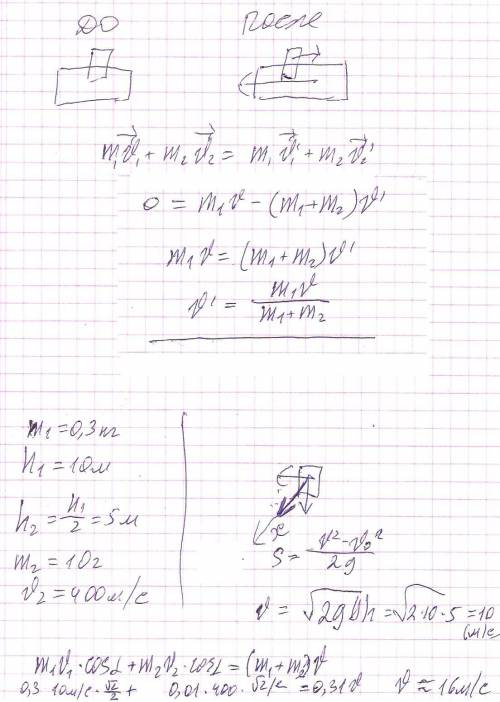 ДО После
m₁v⃗₁ + m₂v⃗₂ = m₁v⃗₁' + m₂v⃗₂'
0 = m₁v - (m₁+m₂)v'
m₁v = (m₁+m₂)v'
v' = m₁v / (m₁+m₂)
m₁ = 0,3 кг
h₁ = 10м
h₂ = h₁/2 = 5м
m₂ = 10г
v₂ = 400м/с
x
S = (v² - v₀²) / 2g
v = √2gΔh = √2·10·5 = 10 (м/с)
m₁v₁·cosα + m₂v₂·cosα = (m₁+m₂)v
0,3 10м/с·√2/2 + 0,01·400·√2/2 = 0,31v v ≈ 16м/с